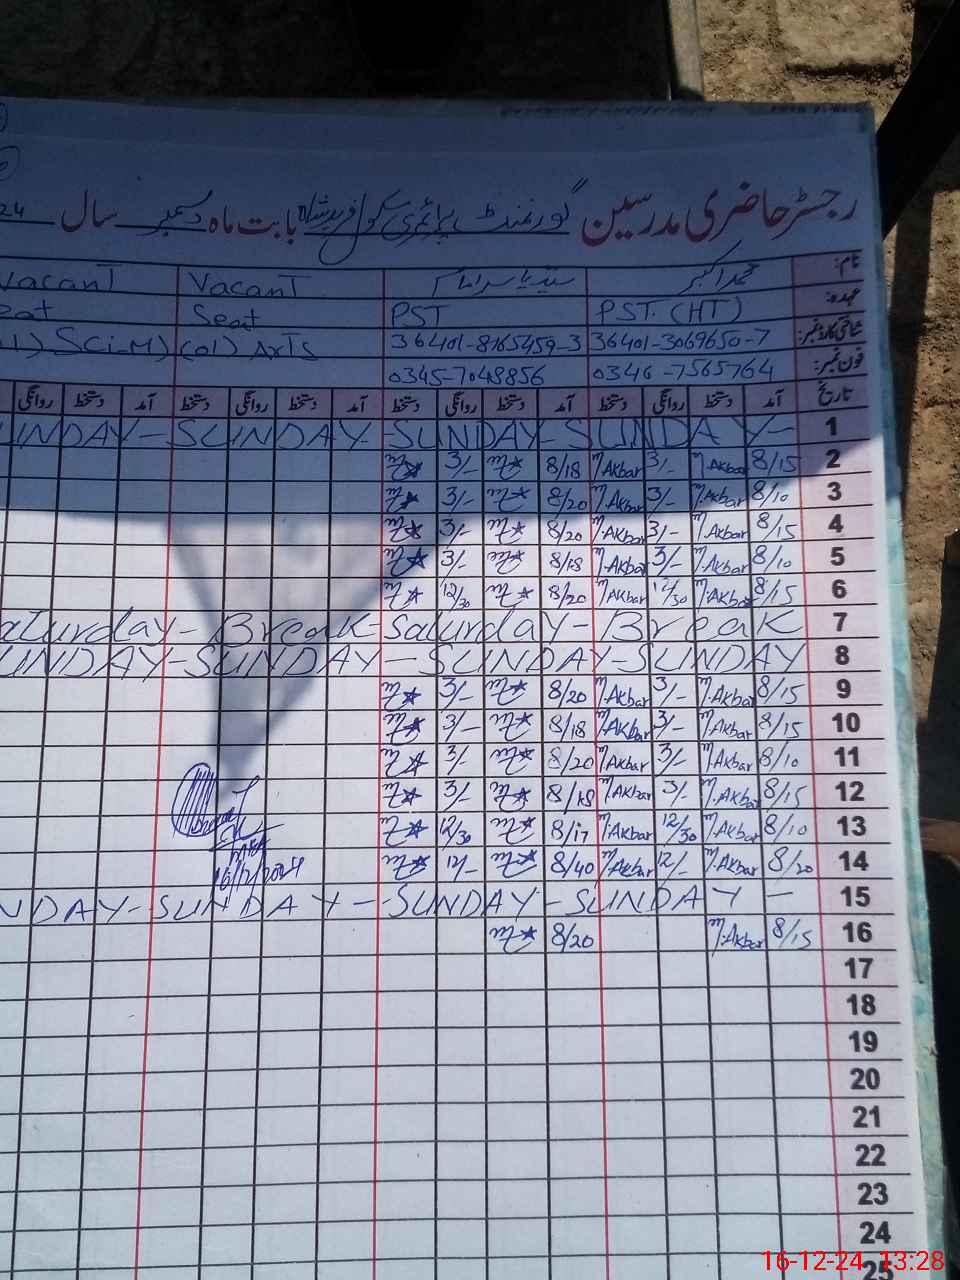 رجسٹر حاضری مدرسین گورنمنٹ پرائمری سکول فرید شاہ بابت ماہ دسمبر سال 24
نام: محمد اکبر VacanT VacanT
عہدہ: PST. (HT) PST Seat
شناختی کارڈ نمبر: 36401-3069650-7 36401-8165459-3 (01) ArTs
فون نمبر: 0346-7565764 0345-7048856
تاریخ آمد دستخط روانگی دستخط آمد دستخط روانگی دستخط آمد دستخط روانگی دستخط آمد دستخط روانگی
1 SUNDAY- SUNDAY- SUNDAY- SUNDAY-
2 8/15 M.Akbar 3/- M.Akbar 8/18 3/-
3 8/10 M.Akbar 3/- M.Akbar 8/20 3/-
4 8/15 M.Akbar 3/- M.Akbar 8/20 3/-
5 8/10 M.Akbar 3/- M.Akbar 8/18 3/-
6 8/15 M.Akbar 12/30 M.Akbar 8/20 12/30
7 Saturday- Break- Saturday- Break
8 SUNDAY-SUNDAY-SUNDAY-SUNDAY
9 8/15 M.Akbar 3/- M.Akbar 8/20 3/-
10 8/15 M.Akbar 3/- M.Akbar 8/18 3/-
11 8/10 M.Akbar 3/- M.Akbar 8/20 3/-
12 8/15 M.Akbar 3/- M.Akbar 8/18 3/-
13 8/10 M.Akbar 12/30 M.Akbar 8/17 12/30
14 8/20 M.Akbar 12/- M.Akbar 8/40 12/-
16/12/2024
15 SUNDAY- SUNDAY- SUNDAY-
16 8/15 M.Akbar 8/20
17
18
19
20
21
22
23
24
25
16-12-24 13:28